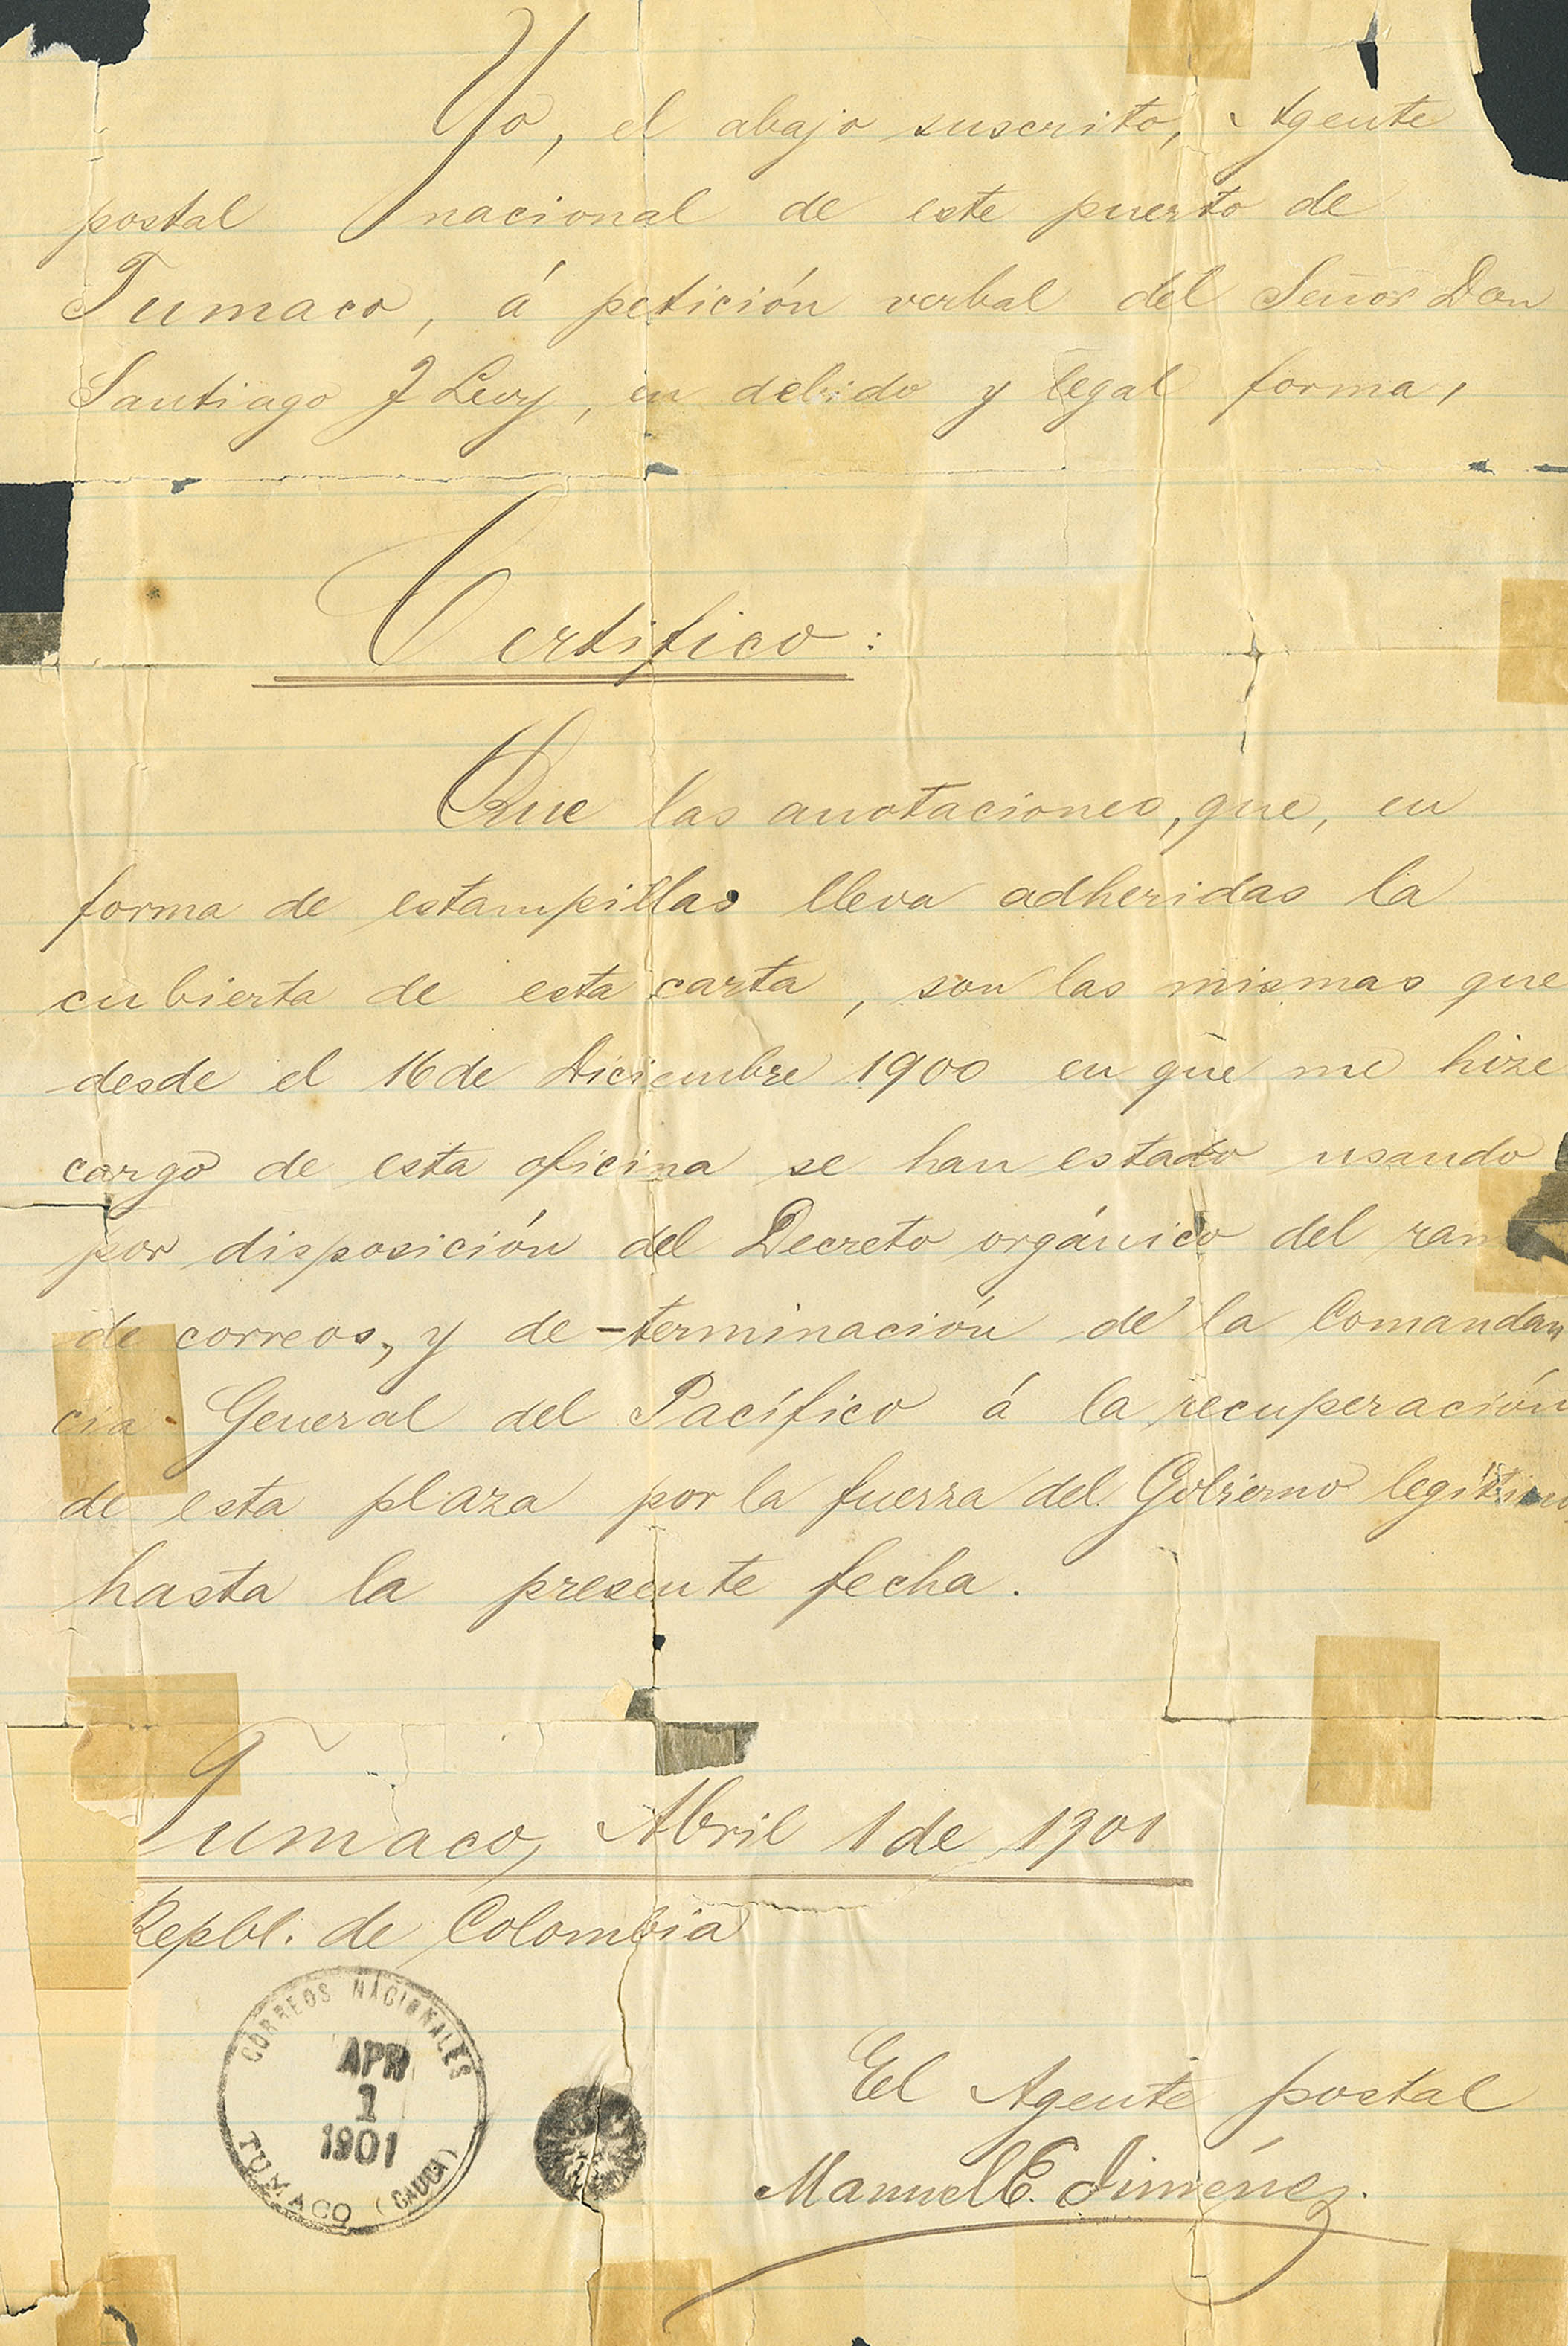 Yo, el abajo suscrito, Agente
postal nacional de este puerto de
Tumaco, á petición verbal del Señor Don
Santiago J Levy, en debido y legal forma,
Certifico:
Que las anotaciones, que, en
forma de estampillas lleva adheridas la
cubierta de esta carta, son las mismas que
desde el 16 de Diciembre 1900 en que me hize
cargo de esta oficina se han estado usando
por disposición del Decreto orgánico del ram
de correos, y de-terminación de la Comandan
cia General del Pacífico á la recuperación
de esta plaza por la fuerza del Gobierno legítimo
hasta la presente fecha.
Tumaco, Abril 1 de 1901
Repbl. de Colombia
CORREOS NACIONALES
APR
1
1901
TUMACO (CAUCA)
El Agente postal
Manuel E. Jiménez.